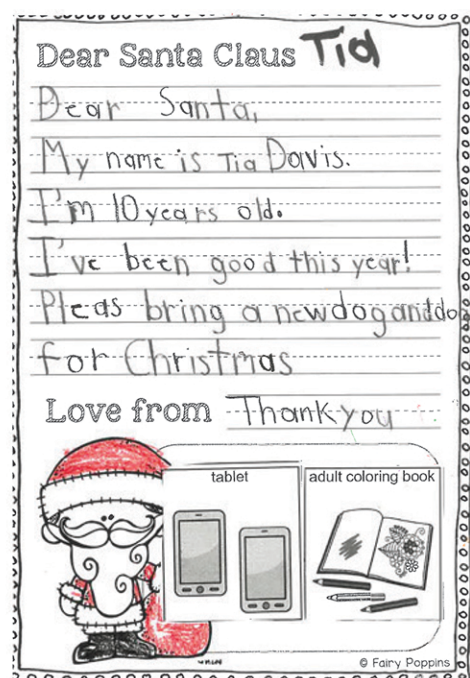 Dear Santa Claus Tia
Dear Santa,
My name is Tia Davis.
I'm 10 years old.
I've been good this year!
Pleas bring a new dog and
for Christmas
Love from Thank you
tablet
adult coloring book
© Fairy Poppins